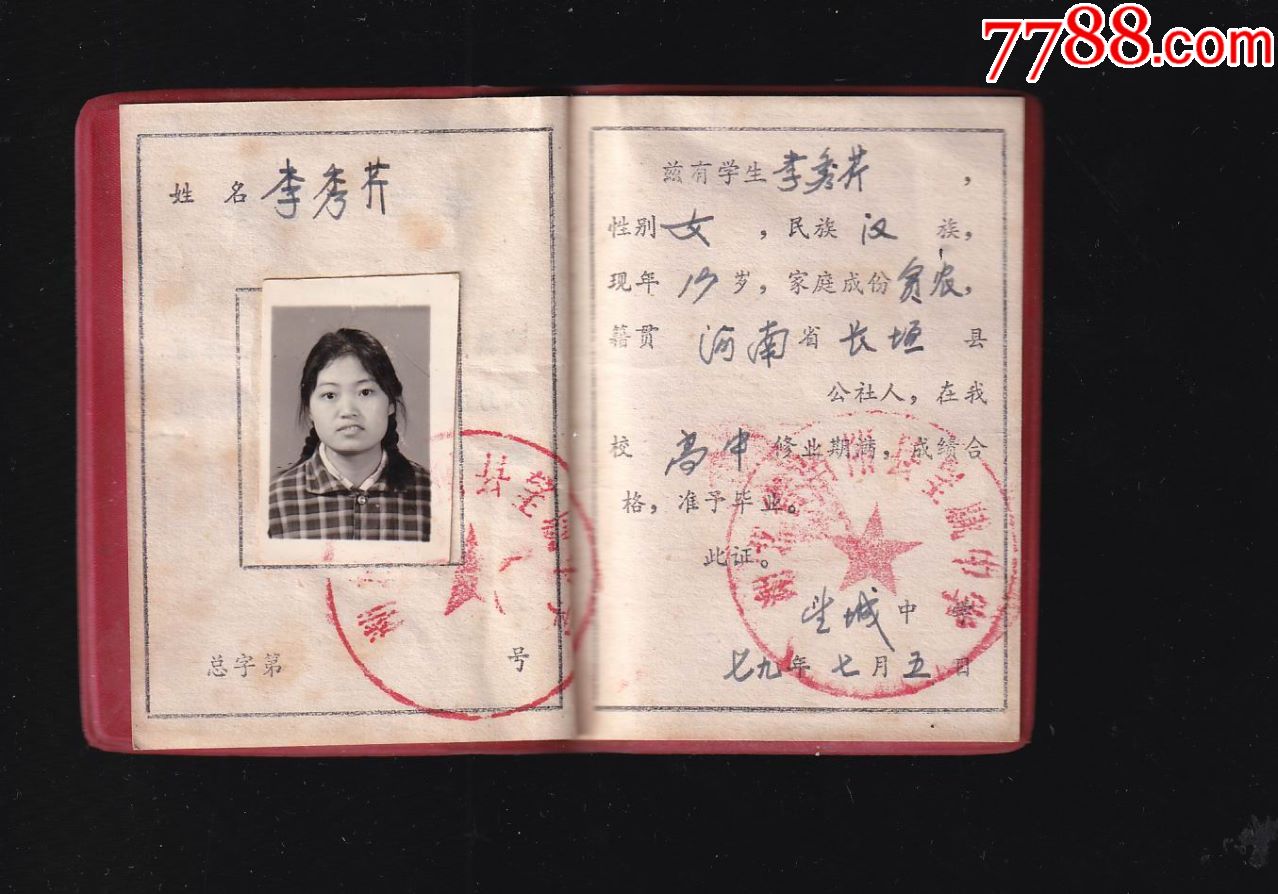 7788.com
姓 名 李秀芹
总字第 号
兹有学生李秀芹,
性别女,民族汉族,
现年17岁,家庭成份贫农,
籍贯河南省长垣县
公社人,在我
校高中修业期满,成绩合
格,准予毕业。
此证。
城中学
七九年七月五日